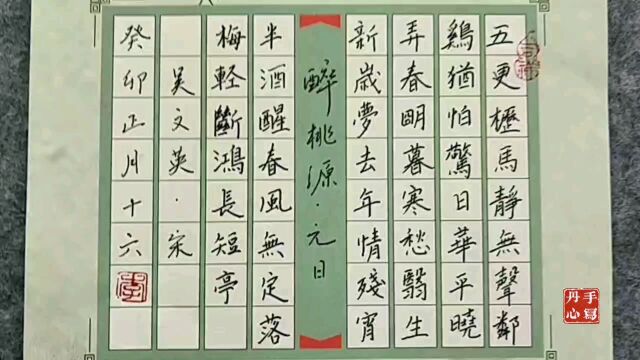 五更櫪馬靜無聲鄰
鷄猶怕驚日華平曉
弄春明暮寒愁翳生
新歲夢去年情殘宵
醉桃源·元日
半酒醒春風無定落
梅輕斷鴻長短亭
吳文英·宋
癸卯正月十六
手寫
丹心